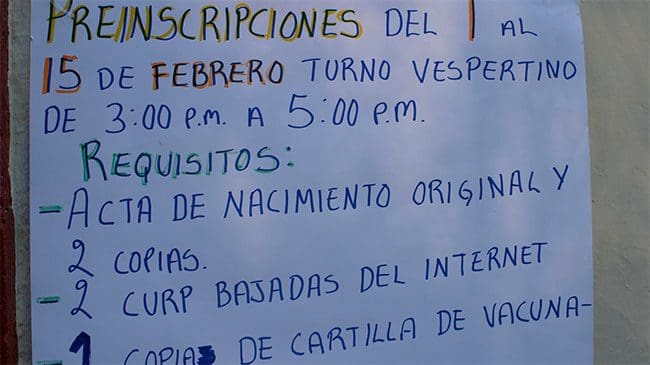 PREINSCRIPCIONES DEL 1 AL
15 DE FEBRERO TURNO VESPERTINO
DE 3:00 P.M. A 5:00 P.M.
REQUISITOS:
- ACTA DE NACIMIENTO ORIGINAL Y
2 COPIAS.
- 2 CURP BAJADAS DEL INTERNET
- 1 COPIAS DE CARTILLA DE VACUNA-